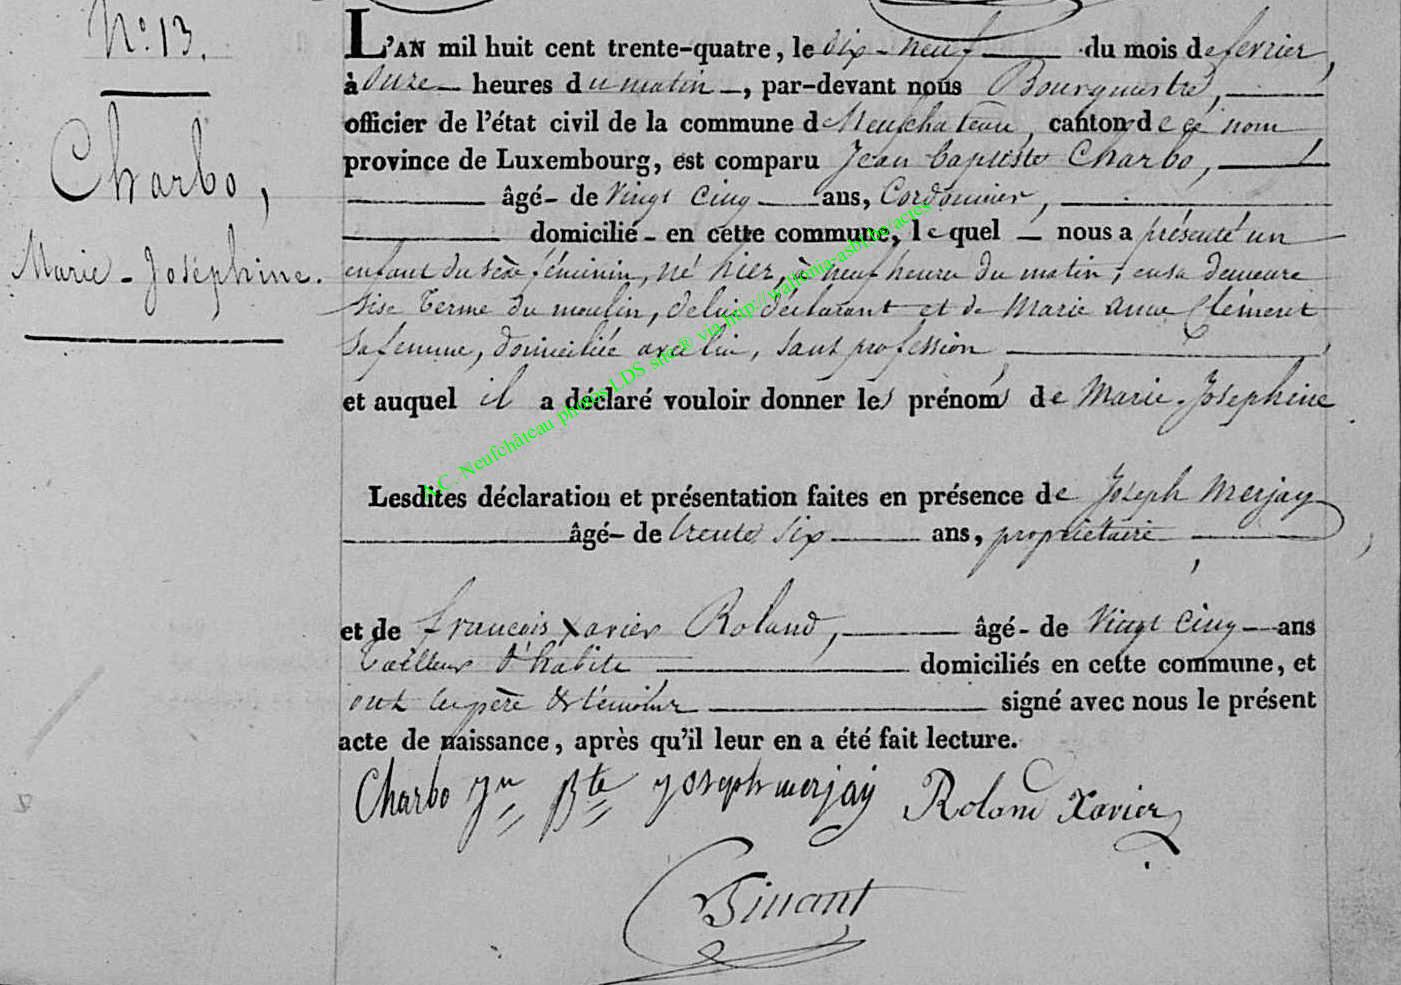 N.º 13.
Charbo,
Marie-Joséphine.
L'AN mil huit cent trente-quatre, le dix-neuf du mois de fevrier,
à onze heures du matin, par-devant nous Bourguestre,
officier de l'état civil de la commune de Neufchateau, canton de ce nom
province de Luxembourg, est comparu Jean baptiste Charbo,
âgé de vingt cinq ans, Cordonnier,
domicilié en cette commune, lequel nous a présenté un
enfant du sexe féminin, né hier, à neuf heures du matin, en sa demeure
sise terme du moulin, de lui déclarant et de Marie anne Clément
sa femme, domiciliée avec lui, sans profession
et auquel il a déclaré vouloir donner les prénoms de Marie-Josephine
Lesdites déclaration et présentation faites en présence de Joseph Merjay
âgé de trente six ans, propriétaire,
et de françois Xavier Roland, âgé de vingt cinq ans
tailleur d'habits domiciliés en cette commune, et
ont les père & témoins signé avec nous le présent
acte de naissance, après qu'il leur en a été fait lecture.
Charbo Jn Bte Joseph merjay Roland Xavier
A.C. Neufchâteau photos LDS site® via http://wallonia-asbl.be/actes